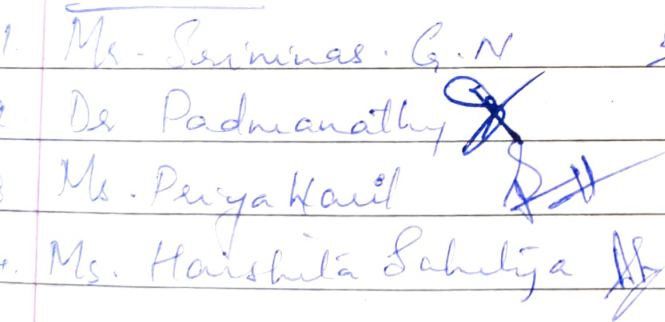 1. Mr. Srininas. G. N
2 Dr Padmanathy
3 Ms. Periya Havil
4. Ms. Harshita Sahitya